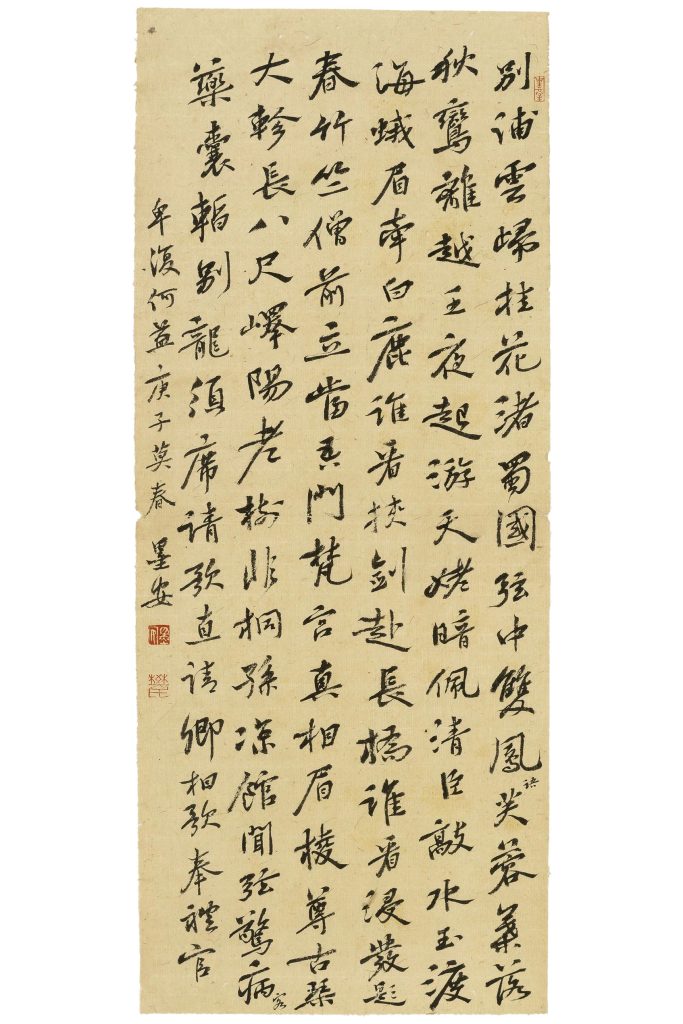 別浦雲歸桂花渚蜀國弦中雙鳳語芙蓉葉落
秋鸞離越王夜起游天姥暗佩清臣敲水玉渡
海蛾眉牽白鹿誰看挾劍赴長橋誰看浸發題
春竹竺僧前立當吾門梵宮真相眉棱尊古琴
大軫長八尺嶧陽老樹非桐孫涼館聞弦驚病客
藥囊暫別龍須席請歌直請卿相歌奉禮官
卑復何益庚子莫春墨安